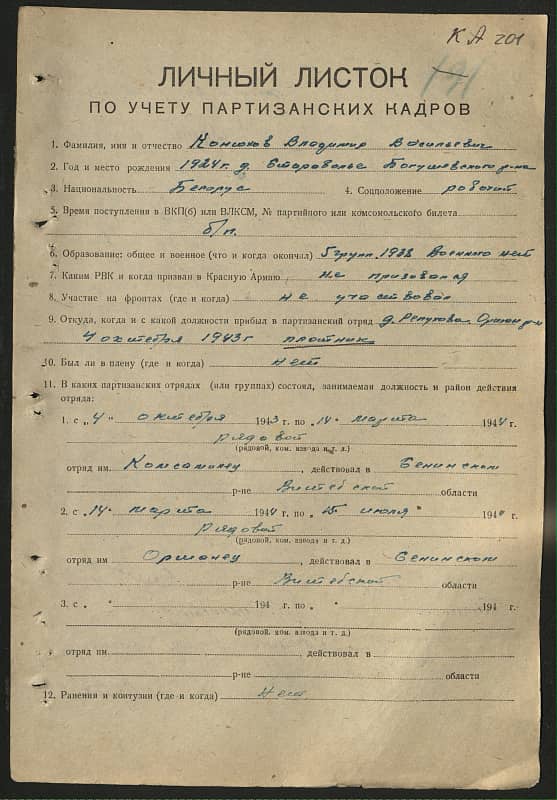 КА 201
ЛИЧНЫЙ ЛИСТОК
ПО УЧЕТУ ПАРТИЗАНСКИХ КАДРОВ
1. Фамилия, имя и отчество Конюхов Владимир Васильевич
2. Год и место рождения 1924 г. д. Староволье Богушевского р-на
3. Национальность Белорус 4. Соцположение рабочий
5. Время поступления в ВКП(б) или ВЛКСМ, № партийного или комсомольского билета
б/п.
6. Образование: общее и военное (что и когда окончил) 5 групп. 1938 Военного нет
7. Каким РВК и когда призван в Красную Армию не призовался
8. Участие на фронтах (где и когда) не участвовал
9. Откуда, когда и с какой должности прибыл в партизанский отряд д. Репухова
4 октября 1943 г плотник
10. Был ли в плену (где и когда) нет
11. В каких партизанских отрядах (или группах) состоял, занимаемая должность и район действия
отряда:
1. с „4“ октября 1943 г. по „14“ марта 1944 г.
рядовой
(рядовой, ком. взвода и т. д.)
отряд им. Комсамолец, действовал в Сенинском
р-не Витебской области
2. с „14“ марта 1944 г. по июля 1944 г.
рядовой
(рядовой, ком. взвода и т. д.)
отряд им Оршанец, действовал в Сенинском
р-не Витебской области
3. с „ “ 194 г. по „ “ 194 г.
(рядовой, ком. взвода и т. д.)
отряд им. , действовал в
р-не области
12. Ранения и контузии (где и когда) нет